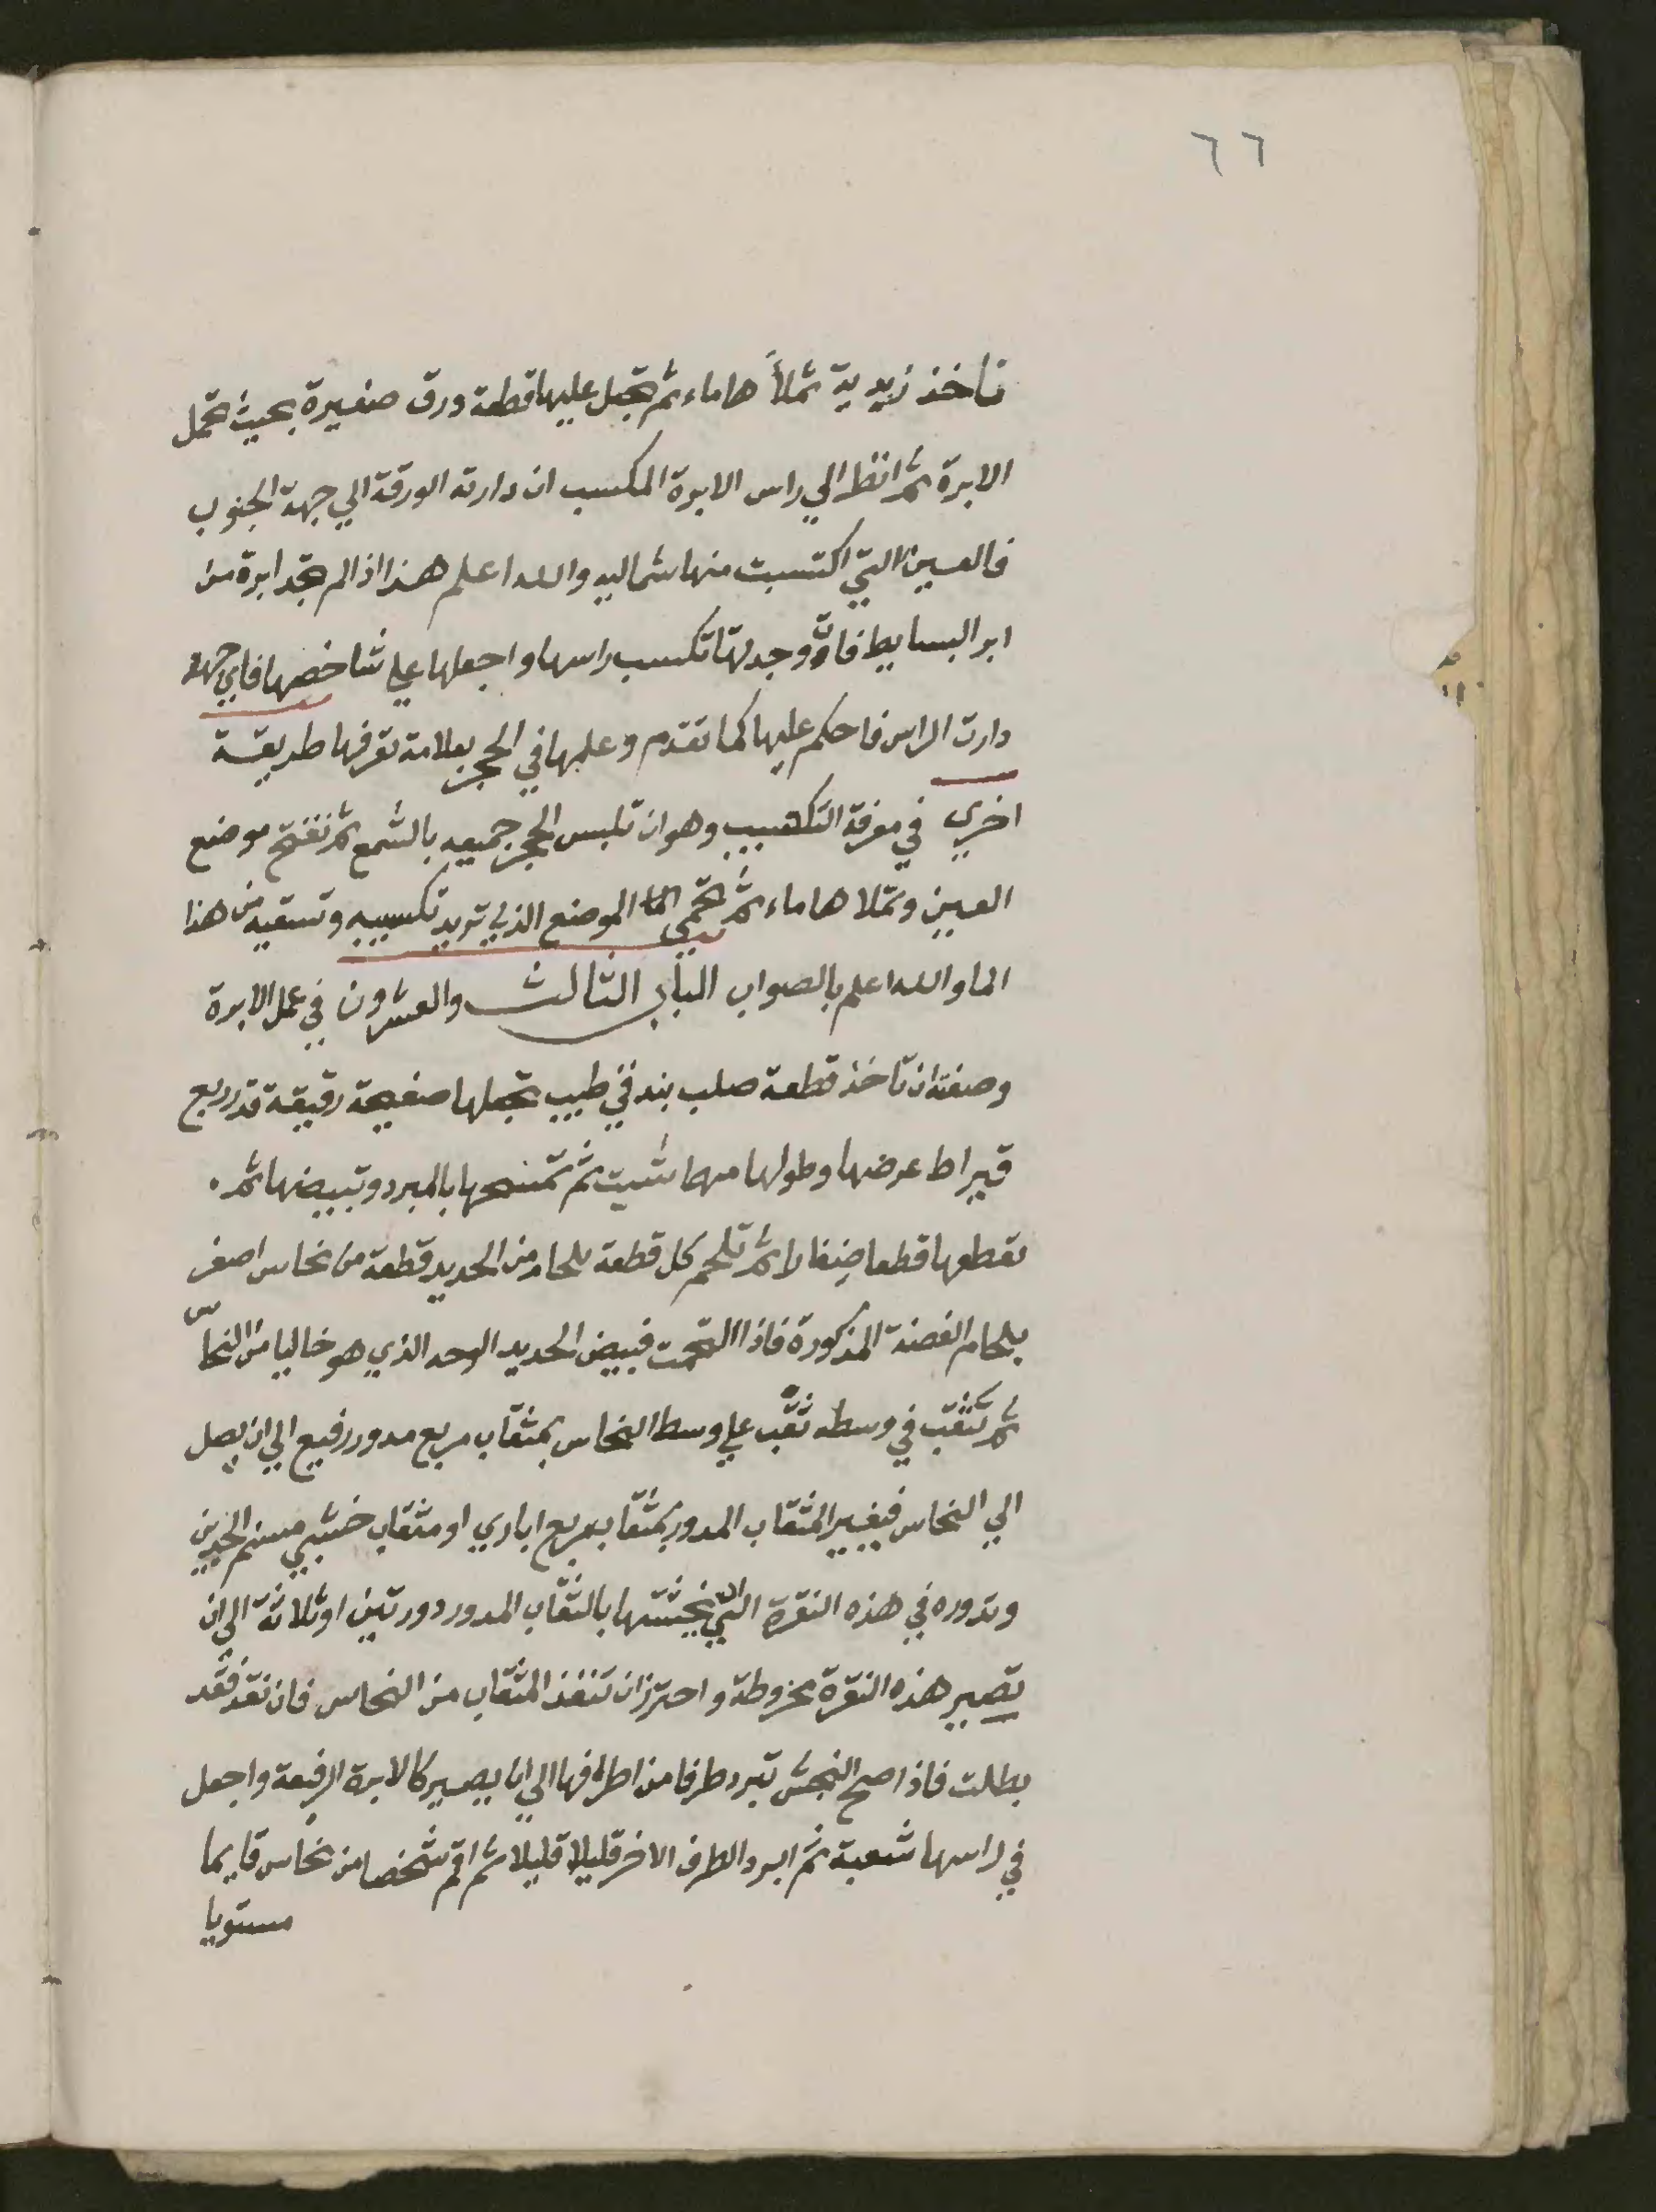 ٦٦
تاخذ زيدية تملأ هاماء ثم تجعل عليها قطعة ورق صغيرة بحيث تحمل
الابرة ثم انظر الي راس الابرة المكسب ان دارت الورقة الي جهة الجنوب
فالعين التي اكتسبت منها شماليه والله اعلم هذا اذا لم تجد ابرة من
ابر البسايط فان وجدتها تكسب راسها واجعلها علي شاخصها فاي جهة
دارت الراس فاحكم عليها كما تقدم وعلمها في الحجر بعلامة تعرفها طريقة
اخري في معرفة التكهيب وهو ان تلبس الحجر جميعه بالشمع ثم تفتح موضع
العين وتملا هاماء ثم تحمي الموضع الذي تريد تكسيبه وتسقيه من هذا
الما والله اعلم بالصواب الباب الثالث والعشرون في عمل الابرة
وصفته ان تاخذ قطعة صلب بندقي طيب تجعلها صفيحة رقيقة قدر ربع
قيراط عرضها وطولها مهما شيت ثم تمسحها بالمبرد وتبيضها ثم
تقطعها قطعا صغارا ثم تلحم كل قطعة بلحام من الحديد قطعة من نحاس اصفر
بلحام الفضة المذكورة فاذا التحمت فبيض الحديد الوحد الذي هو خاليا من النحاس
ثم تثقب في وسطه ثقب علي وسط النحاس بمثقاب مربع مدور رفيع الي ان يصل
الي النحاس فيغير المثقاب المدور بمثقاب مربع اباري او مثقاب خشبي مسنم الحدين
وتدوره في هذه النقرة التي نخشتها بالثقاب المدور دورتين او ثلاثة الي ان
تصير هذه النقرة مخروطة واحترز ان تنفذ المثقاب من النحاس فان نفذ فقد
بطلت فاذا صح النجش تبرد طرفا من اطرافها الي ان يصير كالابرة الرفيعة واجعل
في راسها شعبة ثم ابرد الطرف الاخر قليلا قليلا ثم اقم شخصا من نحاس قايما
مستويا